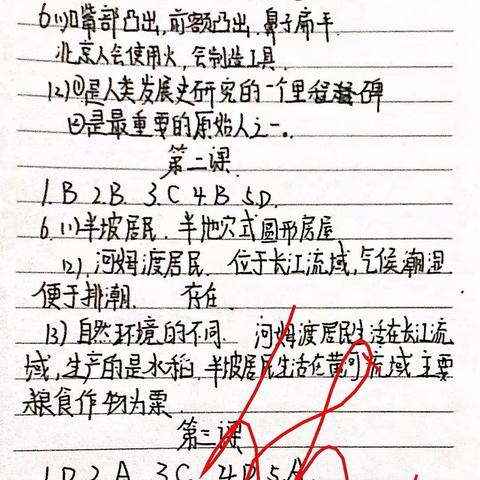 6.(1)嘴部凸出,前额凸出.鼻子扁平.
北京人会使用火,会制造工具.
(2)①是人类发展史研究的一个里程碑
②是最重要的原始人之一。
第二课
1.B 2.B. 3.C 4.B 5.D.
6.(1)半坡居民. 半地穴式圆形房屋
(2).河姆渡居民. 位于长江流域,气候潮湿
便于排潮. 存在.
(3)自然环境的不同. 河姆渡居民生活在长江流
域,生产的是水稻,半坡居民生活在黄河流域主要
粮食作物为粟.
第三课
1.D 2.A 3.C. 4.D 5.A